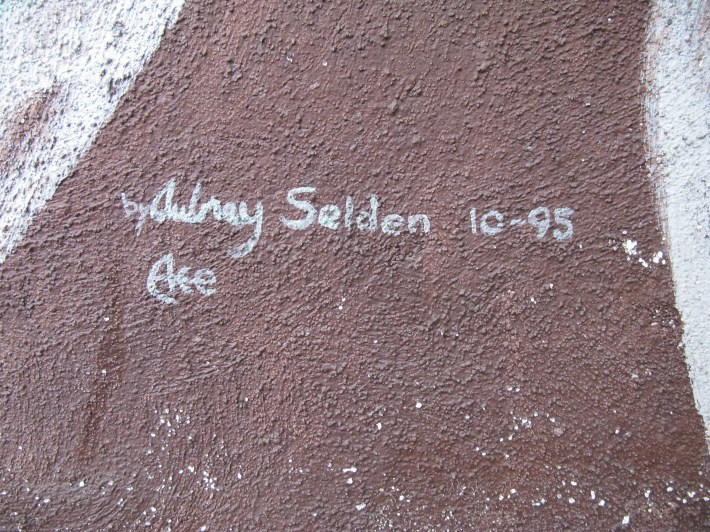 by Aubrey Selden 10-95
Ace